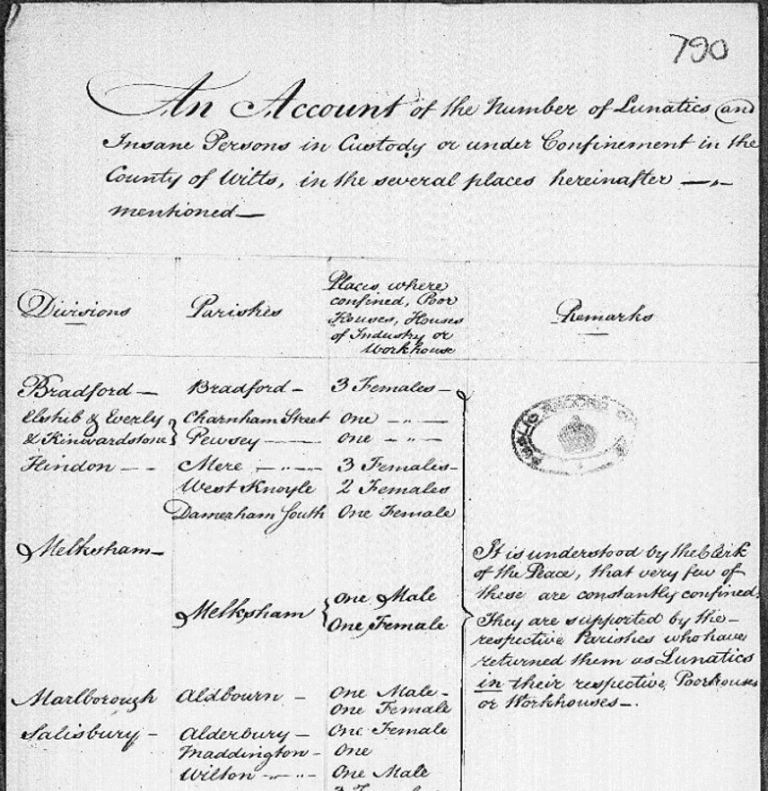 790
An Account of the Number of Lunatics and
Insane Persons in Custody or under Confinement in the
County of Wilts, in the several places hereinafter —"—
mentioned—
Divisions Parishes Places where confined, Poor Houses, Houses of Industry or Workhouse Remarks
Bradford — Bradford — 3 Females —
Elstub & Everly Charnham Street One — " —
& Kinwardstone Pewsey — One — " —
Hindon — — Mere — " — 3 Females —
West Knoyle 2 Females
Damerham South One Female
PUBLIC RECORD
Melksham —
Melksham One Male
One Female
It is understood by the Clerk
of the Peace, that very few of
these are constantly confined.
They are supported by the —
respective Parishes who have
returned them as Lunatics
in their respective Poorhouses
or Workhouses —.
Marlborough Aldbourn — One Male —
One Female
Salisbury — Alderbury — One Female
Maddington — One
Wilton — " — One Male